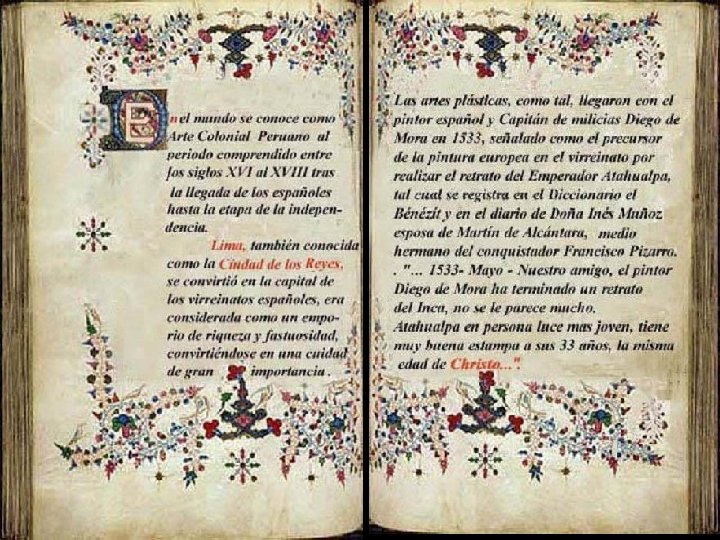 En el mundo se conoce como
Arte Colonial Peruano al
periodo comprendido entre
los siglos XVI al XVIII tras
la llegada de los españoles
hasta la etapa de la indepen-
dencia.
Lima, también conocida
como la Ciudad de los Reyes,
se convirtió en la capital de
los virreinatos españoles, era
considerada como un empo-
rio de riqueza y fastuosidad,
convirtiéndose en una cuidad
de gran importancia .
Las artes plásticas, como tal, llegaron con el
pintor español y Capitán de milicias Diego de
Mora en 1533, señalado como el precursor
de la pintura europea en el virreinato por
realizar el retrato del Emperador Atahualpa,
tal cual se registra en el Diccionario el
Bénézit y en el diario de Doña Inés Muñoz
esposa de Martín de Alcántara, medio
hermano del conquistador Francisco Pizarro.
. "... 1533- Mayo - Nuestro amigo, el pintor
Diego de Mora ha terminado un retrato
del Inca, no se le parece mucho.
Atahualpa en persona luce mas joven, tiene
muy buena estampa a sus 33 años, la misma
edad de Christo...".